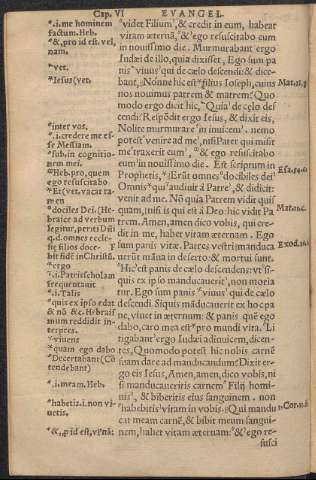 Cap. VI EVANGEL.
*.i. me hominem
factum. Heb.
*&, pro id est, vel,
nam.
*vel.
*Iesus(vel.
*inter vos.
*.i. credere me es-
se Messiam.
*sub, in cognitio
nem mei.
*Heb. pro, quem
ego resuscitabo
*Et(vel, vacat ta
men
*dociles Dei. (He-
braice ad verbum
legitur, periti Dñi
q.d. omnes ecclesię
filios doce-
bit fidē in Christū.
*ergo
*.i. Patrē scholam
frequentavit
*.i. Talis
*quis ex ipso edat
& nō &c. Hebrais
mum reddidit in-
terpres.
*vivens
*quam ego dabo
*Decertabant (Cō
tendebant)
*.i. meam. Heb.
*habetis. i. non vi-
vetis.
*&, p id est, vl, nā:
videt Filium, & credit in eum, habeat
vitam æternā, & ego resuscitabo eum
in novissimo die. Murmurabant ergo
Iudæi de illo, quia dixisset, Ego sum pa
nis vivus qui de cælo descendi: & dice-
bant, Nónne hic est filius Ioseph, cuius
nos novimus patrem & matrem? Quo
modo ergo dicit hic, Quia de cęlo des
cendi? Respōdit ergo Iesus, & dixit eis,
Nolite murmurare in invicem. nemo
potest venire ad me, nisi Pater qui misit
me traxerit eum, & ego resuscitabo
eum in novissimo die. Est scriptum in
Prophetis, Erūt omnes docibiles dei
Omnis qui audiuit à Patre, & didicit:
venit ad me. Nō quia Patrem vidit quis
quam, nisi is qui est à Deo: hic vidit Pa
trem. Amen, amen dico vobis, qui cre-
dit in me, habet vitam æternam. Ego
sum panis vitæ. Patres vestri manduca
uerūt māna in deserto: & mortui sunt.
Hic est panis de cælo descendens: vt si-
quis ex ipso manducauerit, non moria
tur. Ego sum panis vivus qui de cælo
descendi. Siquis māducauerit ex hoc pa
ne, vivet in æternum: & panis quē ego
dabo, caro mea est pro mundi vita. Li
tigabant ergo Iudæi adinvicem, dicen-
tes, Quomodo potest hic nobis carnē
suam dare ad manducandum? Dixit er-
go eis Iesus, Amen, amen, dico vobis, ni
si manducaueritis carnem Filii homi-
nis, & biberitis eius sanguinem. non
habebitis vitam in vobis. Qui mandu
cat meam carnē, & bibit meum sangui-
nem, habet vitam æternam: & ego re-
susci
Exod.16.